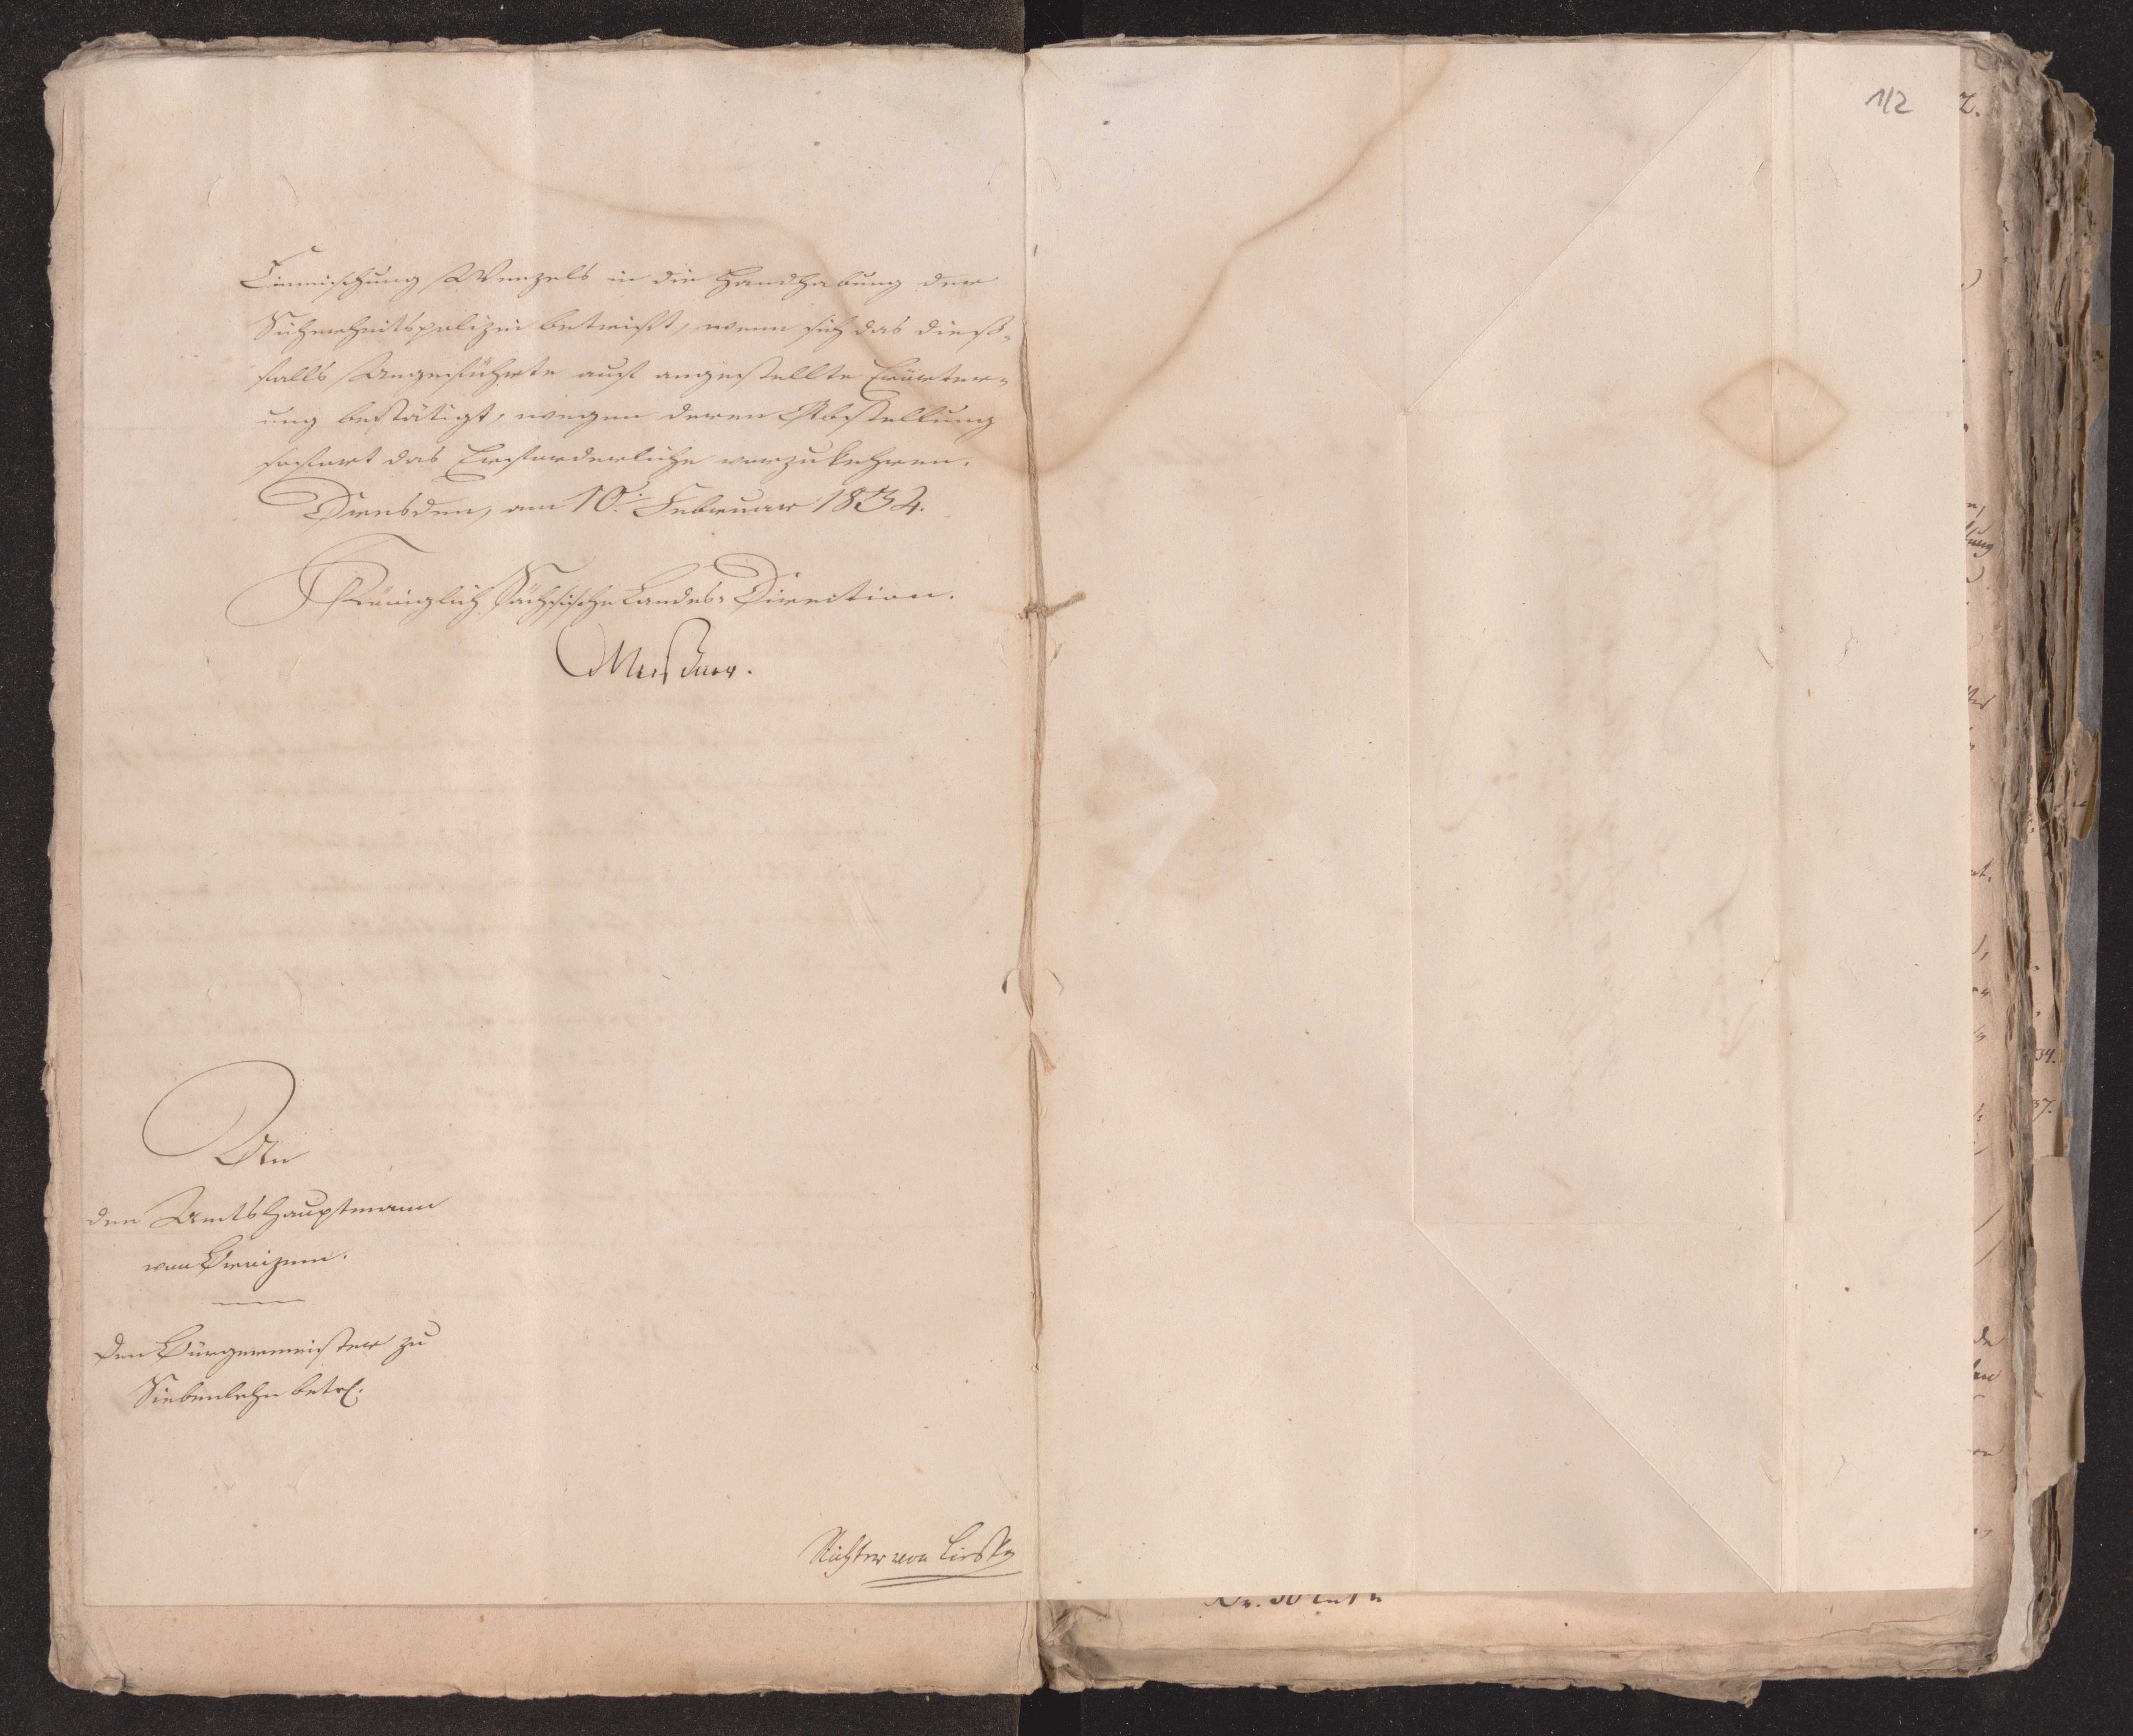 Einmischung Wenzels in die Handhabung der
Sicherheitspolizei betrifft, wenn sich das dieß-
falls Angeführte auf angestellte Erörter-
ung bestätigt, wegen deren Abstellung
sofort das Erforderliche vorzukehren.
Dresden, am 10. Februar 1834.
Königlich Sächsische Landes-Direction.
Meißner.
An
den Amtshauptmann
von
den Bürgermeister zu
Siebenlehn betr.
Richter von
112